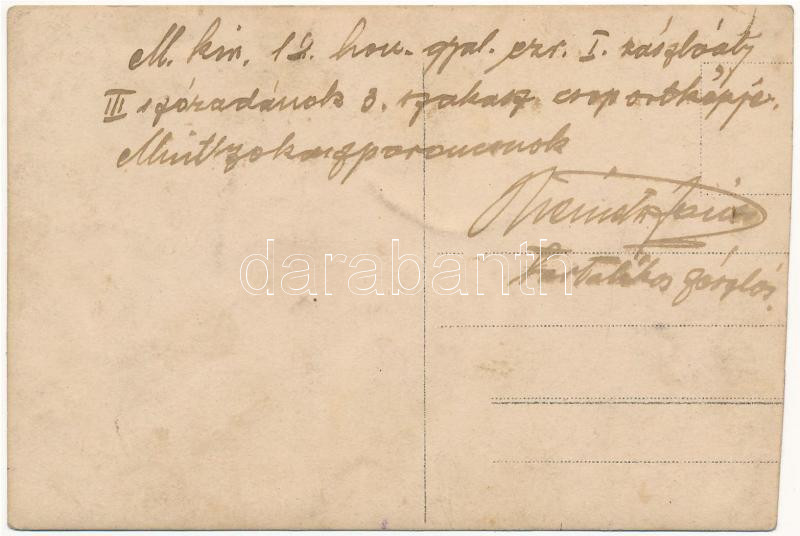 M. kir. 12. hon. gyal. ezr. I. zászlóalj
III századának 3. szakasz csoportképe.
Mint szakaszparancsnok
Németh János
Tartalékos zászlós.
darabanth